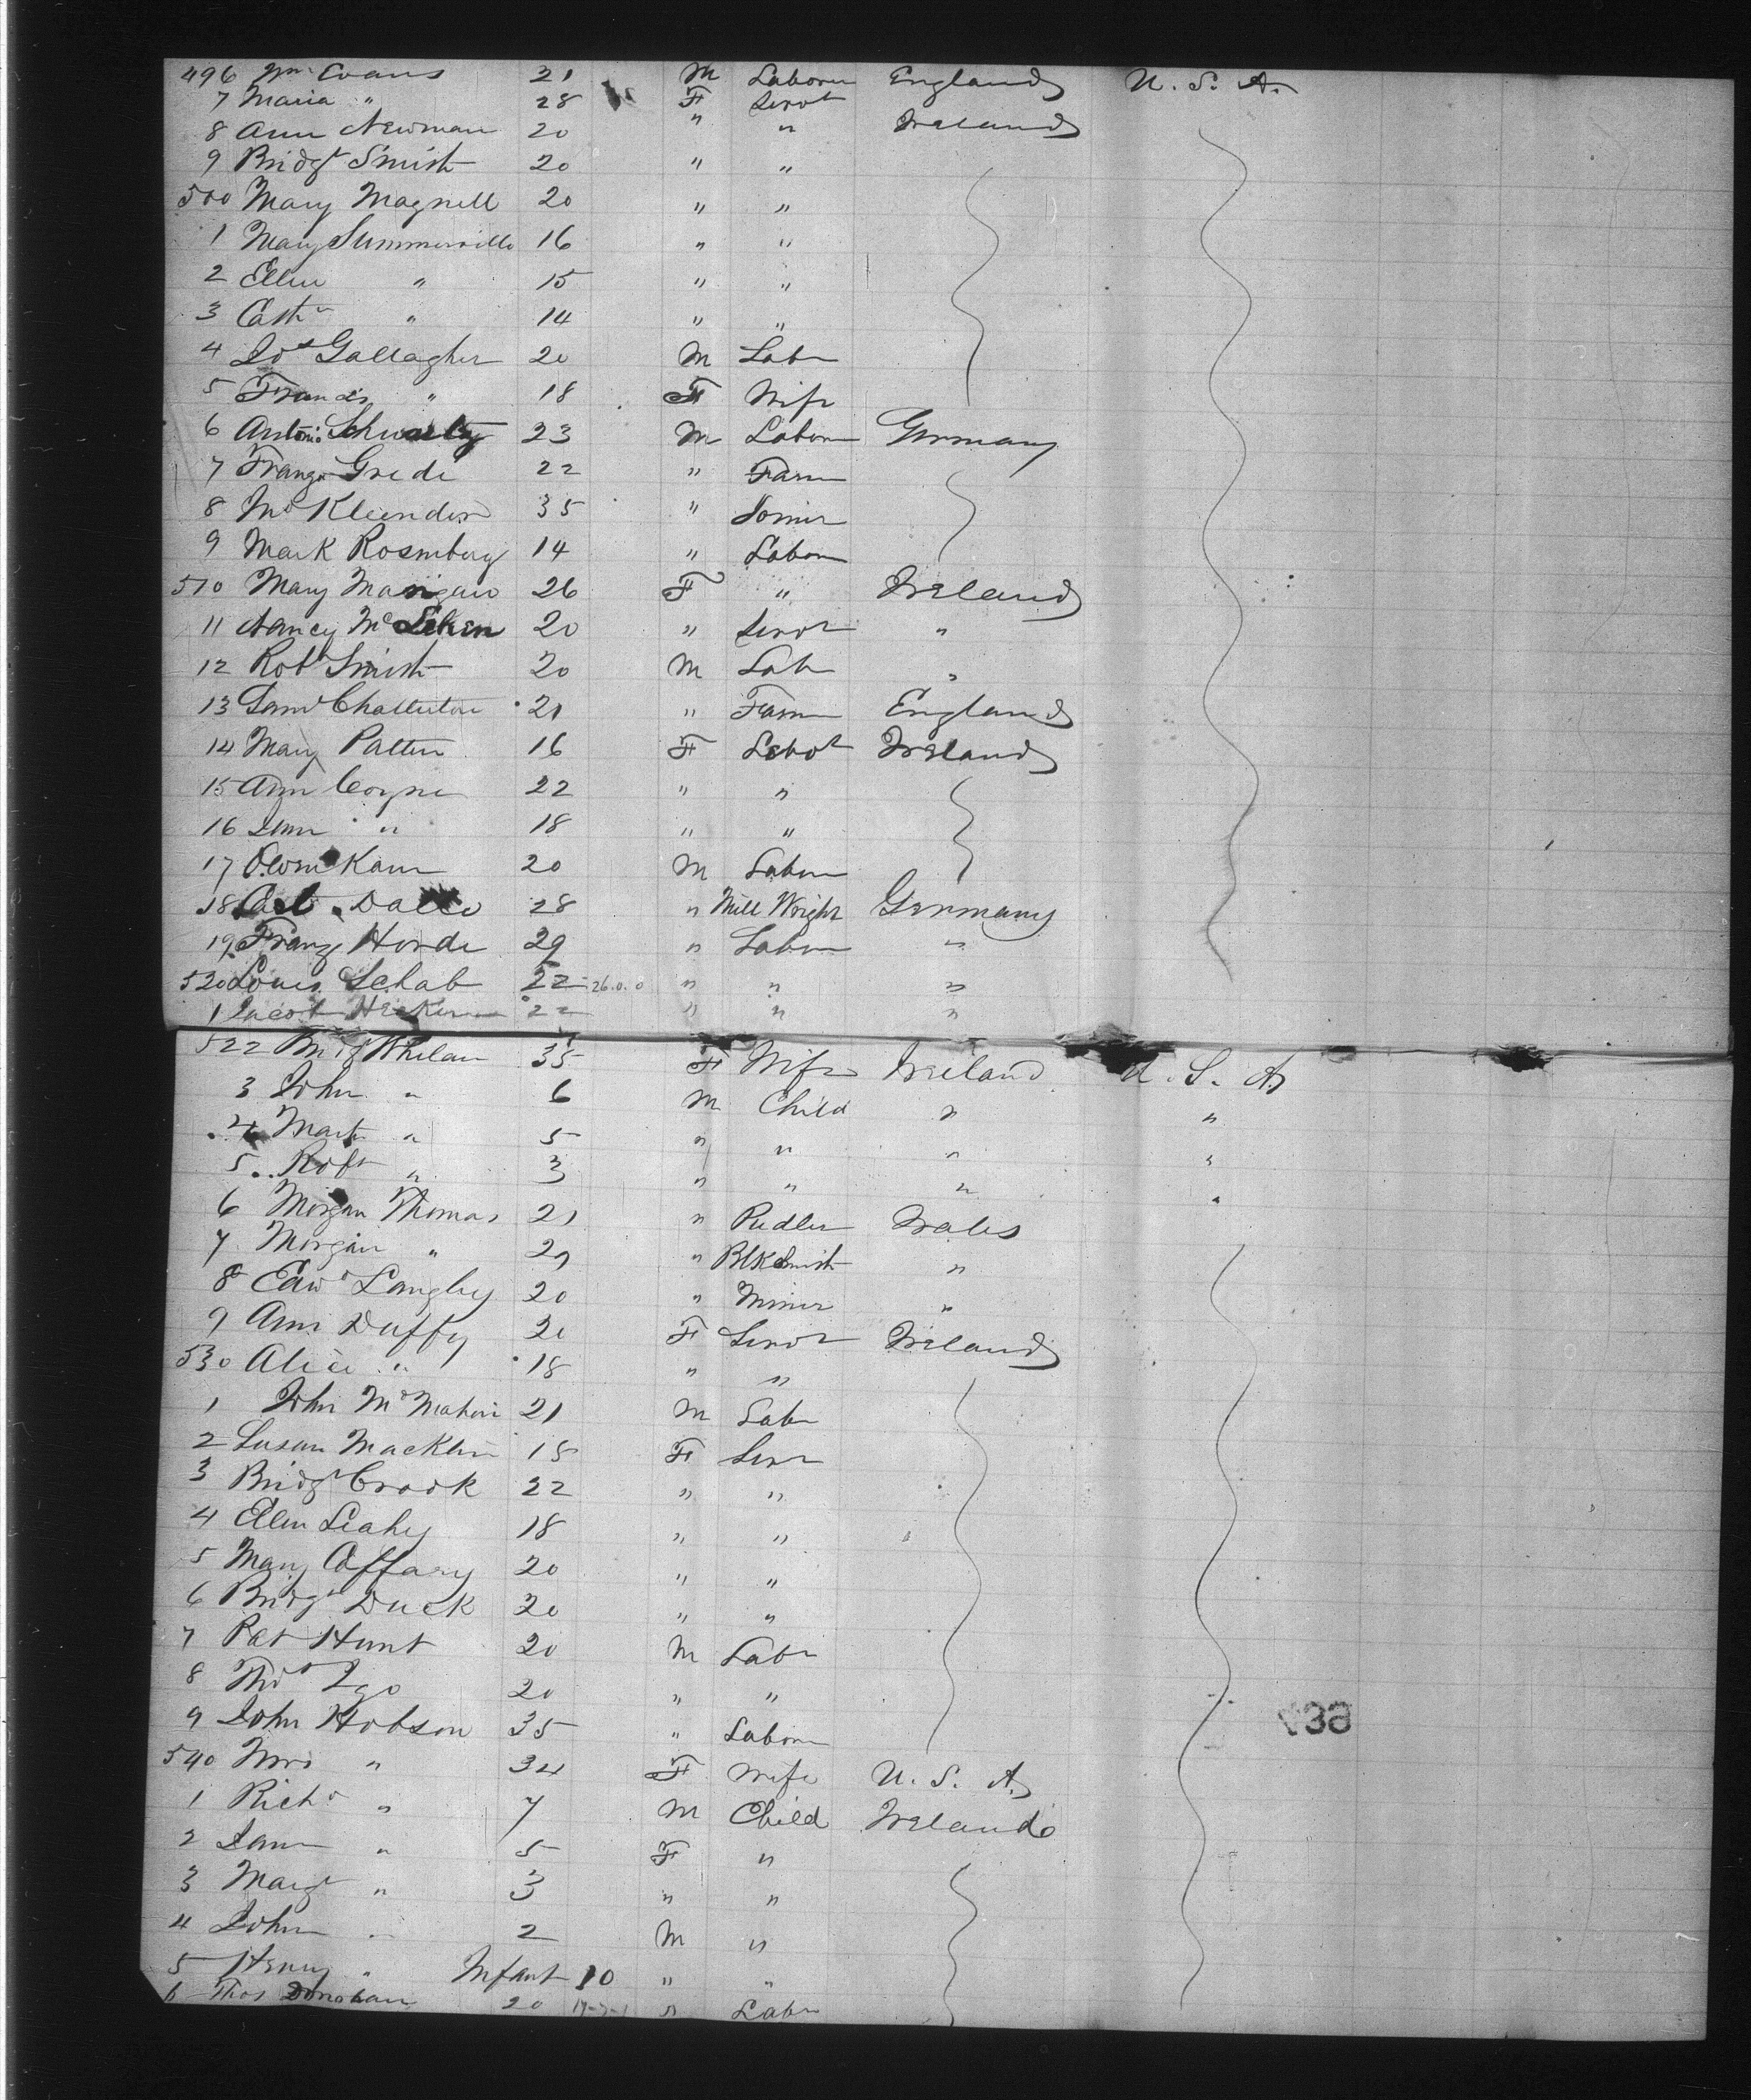 496 Wm Evans 21 M Laborer England U. S. A.
7 Maria " 28 F Servt
8 Ann Newman 20 " " Ireland
9 Bridgt Smith 20 " "
500 Mary Magnell 20 " "
1 Mary Summerville 16 " "
2 Ellen " 15 " "
3 Cath " 14 " "
4 Jos Gallagher 20 M Labr
5 Francis " 18 F Wife
6 Schwartz 23 M Laborer Germany
7 Franz Grede 22 " Farmer
8 35 "
9 Mark Rosenberg 14 " Laborer
510 Mary 26 F " Ireland
11 Nancy Mc 20 " Servt "
12 Robt Smith 20 M Lab "
13 Saml Chatterton 21 " Farmer England
14 Mary Patten 16 F Servt Ireland
15 Ann Coyne 22 " "
16 Jane " 18 " "
17 Owen Kane 20 M Laborer
18 28 " Mill Wright Germany
19 Franz Horde 29 " Laborer "
520 Louis Schab 22 26.0.0 " " "
1 Jacob 22 " " "
522 Bridg Whelan 35 F Wife Ireland U. S. A
3 John " 6 M Child " "
4 Mart " 5 " " " "
5 Robt " 3 " " " "
6 Morgan Thomas 21 " Pudler Wales
7 Morgan " " Blk Smith "
8 Edwd Langley 20 " Miner "
9 Ann Duffy 20 F Servt Ireland
530 Alice " 18 " "
1 John McMahon 21 M Labr
2 Susan Macklin 18 F Serv
3 Bridgt Crook 22 " "
4 Ellen Leahy 18 " "
5 Mary Caffary 20 " "
6 Bridgt Duck 20 " "
7 Pat Hunt 20 M Labr
8 Thos Igo 20 " "
9 John Hobson 35 " Laborer
540 Mrs " 34 F Wife U. S. A.
1 Richd " 7 M Child Ireland
2 Jane " 5 F "
3 Margt " 3 " "
4 John " 2 M "
5 Henry " Infant 10 " "
6 Thos Donohan 20 " Labr